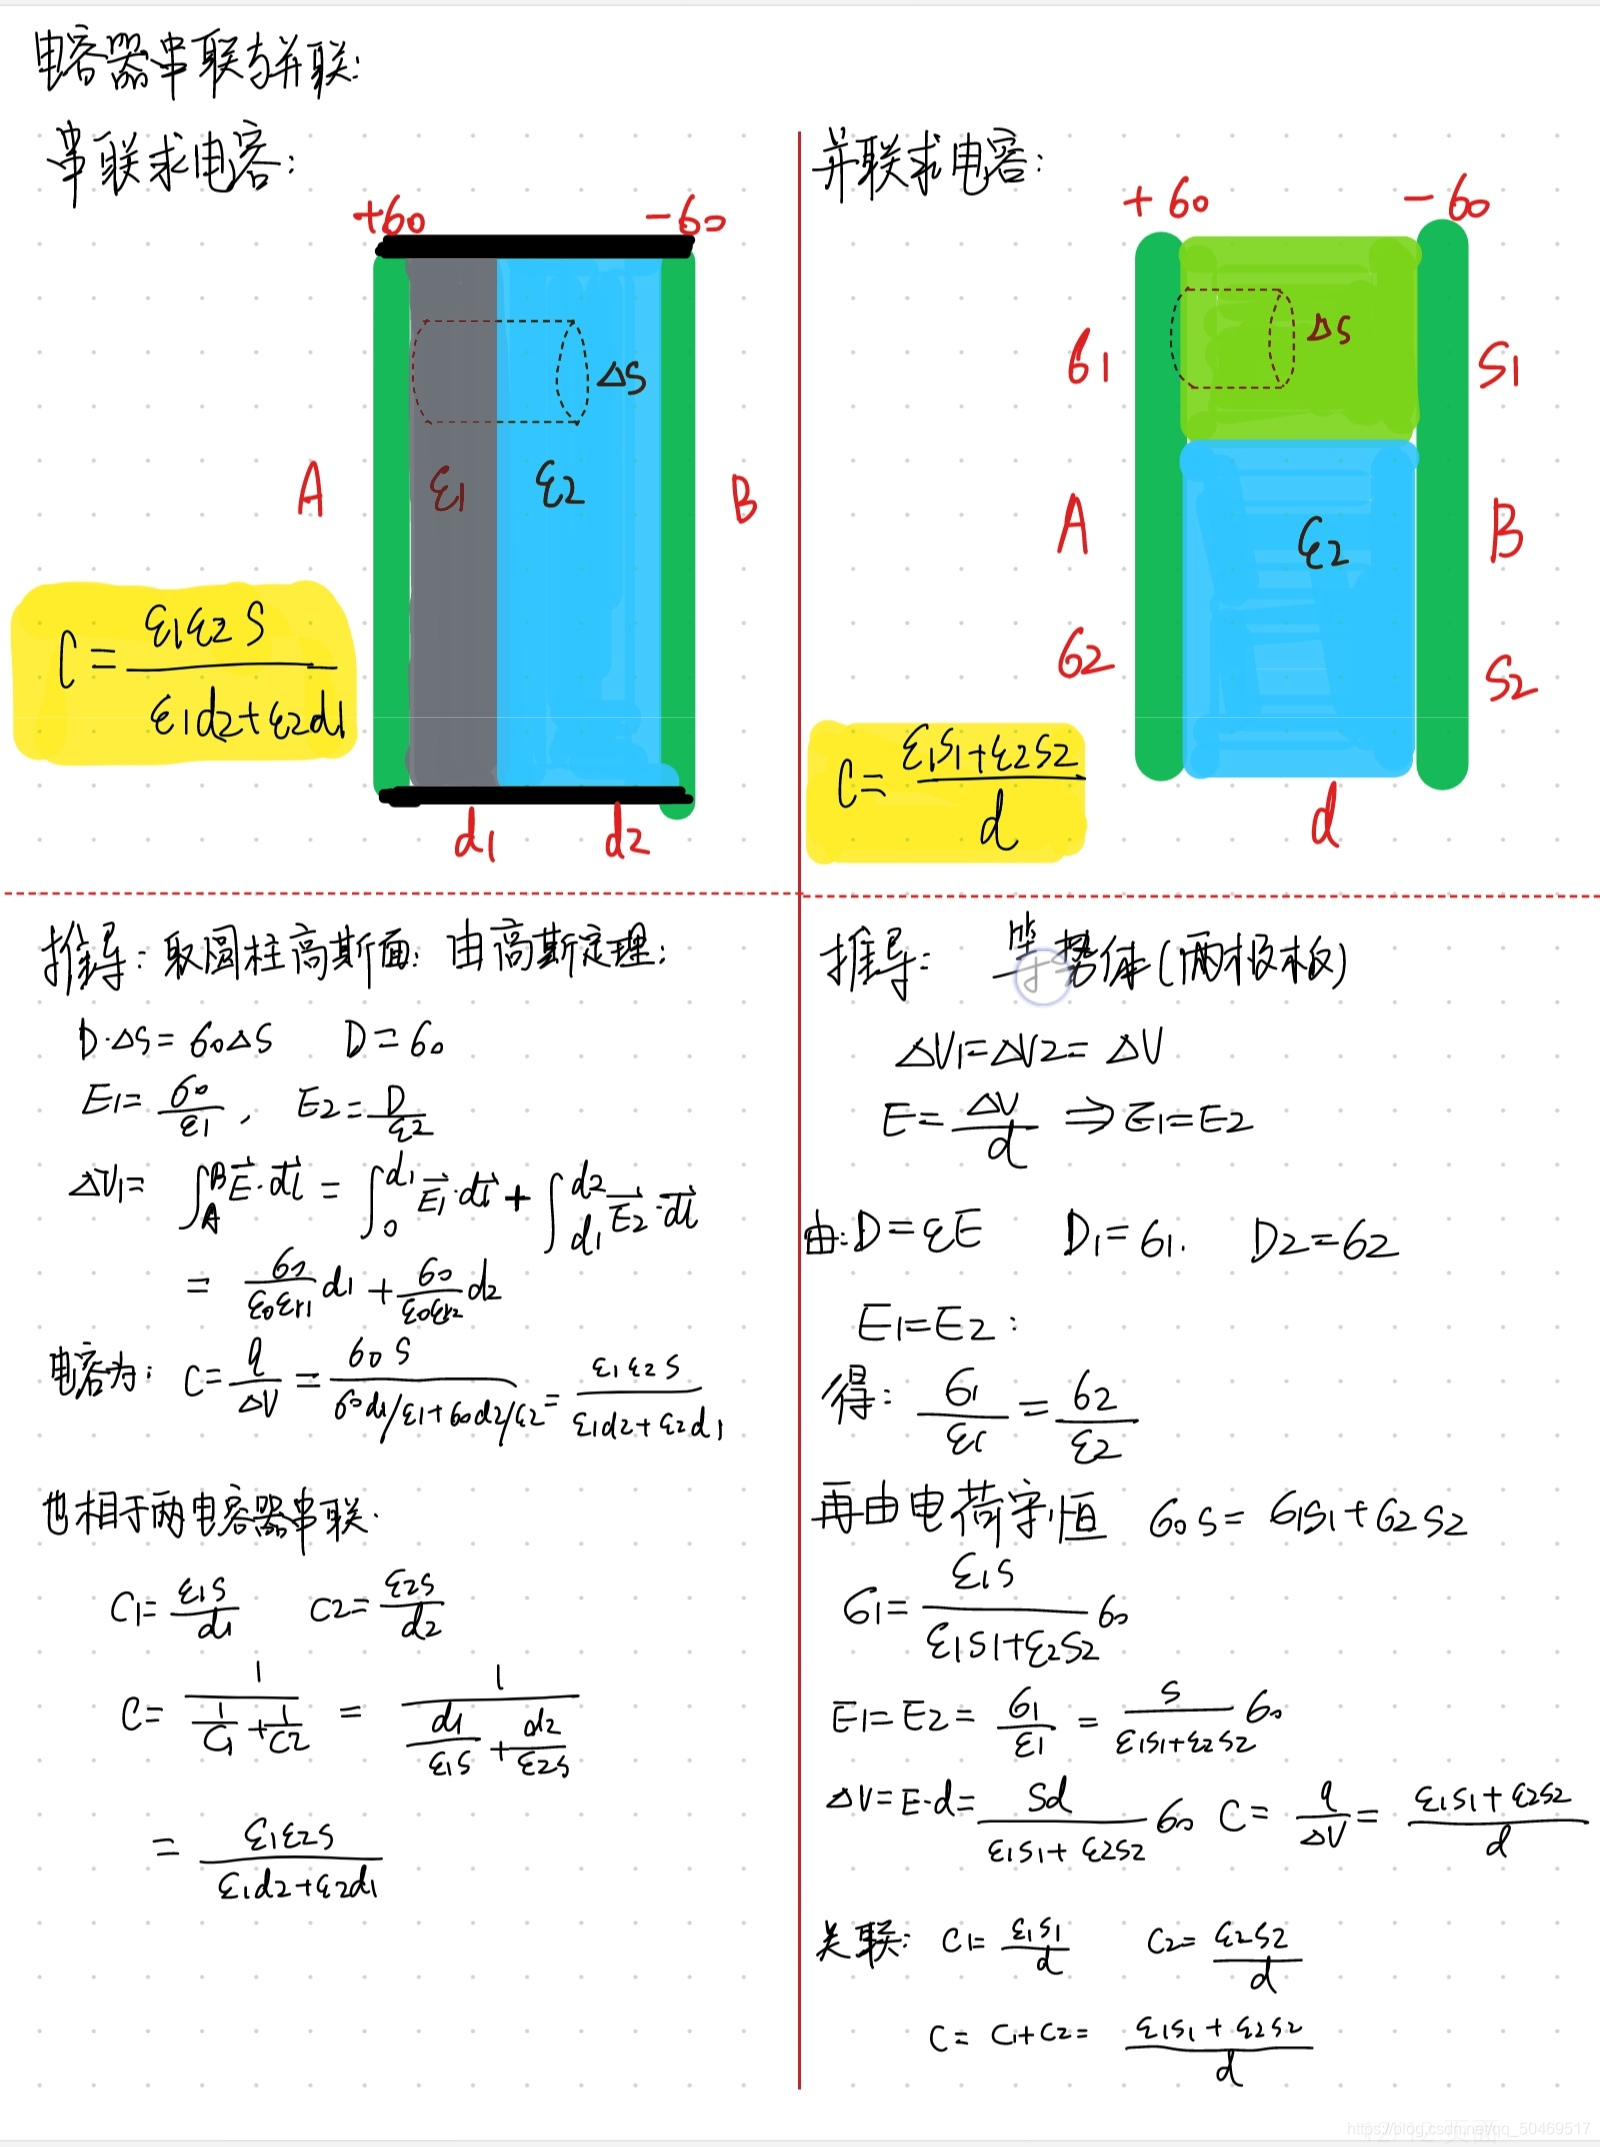 电容器串联与并联:
串联求电容:
+σ0 -σ0
ΔS
A ε1 ε2 B
C = ε1ε2S / (ε1d2+ε2d1)
d1 d2
推导: 取圆柱高斯面: 由高斯定理:
D·ΔS = σ0ΔS D = σ0
E1 = σ0/ε1 , E2 = D/ε2
ΔV1 = ∫_A^B E·dl = ∫_0^d1 E1·dl + ∫_d1^d2 E2·dl
= σ0/(ε0εr1) d1 + σ0/(ε0εr2) d2
电容为: C = q/ΔV = σ0S / (σ0d1/ε1+σ0d2/ε2) = ε1ε2S / (ε1d2+ε2d1)
也相于两电容器串联.
C1 = ε1S/d1 C2 = ε2S/d2
C = 1 / (1/C1 + 1/C2) = 1 / (d1/ε1S + d2/ε2S)
= ε1ε2S / (ε1d2+ε2d1)
并联求电容:
+σ0 -σ0
ΔS
σ1 S1
A ε2 B
σ2 S2
C = (ε1S1+ε2S2) / d
d
推导: 等势体(两极板)
ΔV1 = ΔV2 = ΔV
E = ΔV/d ⇒ E1=E2
由: D = εE D1 = σ1. D2 = σ2
E1 = E2 :
得: σ1/ε1 = σ2/ε2
再由电荷守恒 σ0S = σ1S1+σ2S2
σ1 = ε1S / (ε1S1+ε2S2) σ0
E1 = E2 = σ1/ε1 = S / (ε1S1+ε2S2) σ0
ΔV = E·d = Sd / (ε1S1+ε2S2) σ0 C = q/ΔV = (ε1S1+ε2S2) / d
关联: C1 = ε1S1/d C2 = ε2S2/d
C = C1+C2 = (ε1S1+ε2S2) / d
https://blog.csdn.net/qq_50469517